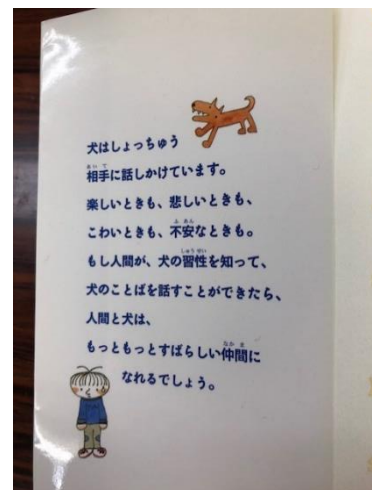 犬はしょっちゅう
相手に話しかけています。
楽しいときも、悲しいときも、
こわいときも、不安なときも。
もし人間が、犬の習性を知って、
犬のことばを話すことができたら、
人間と犬は、
もっともっとすばらしい仲間に
なれるでしょう。